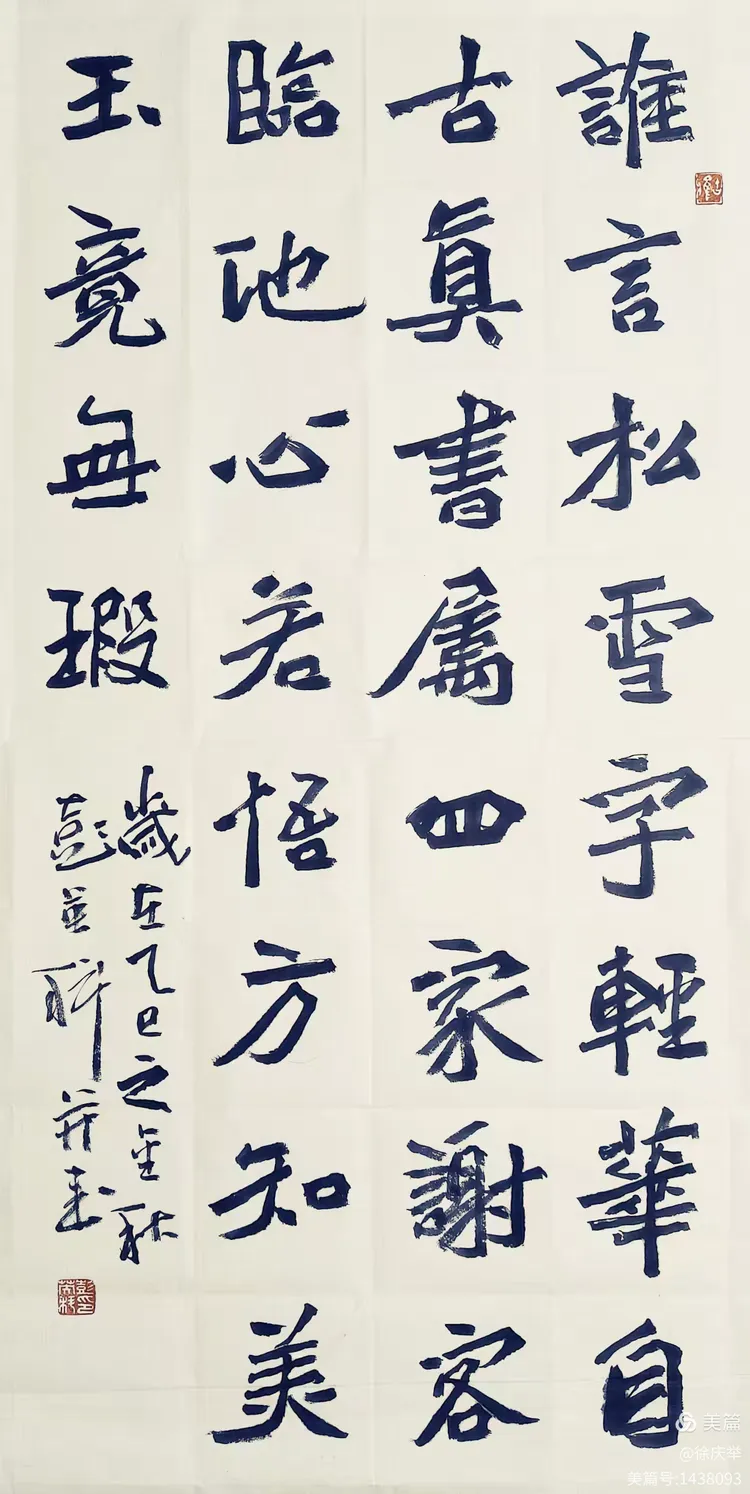 誰言松雪字輕華自
古眞書属四家謝客
臨池心若悟方知美
玉竟無瑕
歲在乙巳之金秋
彭英科并書
美篇
@徐庆举
美篇号:1438093